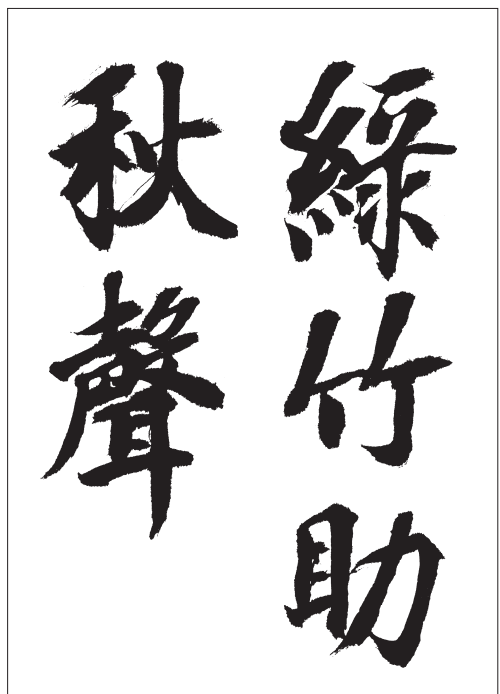 綠竹助
秋聲